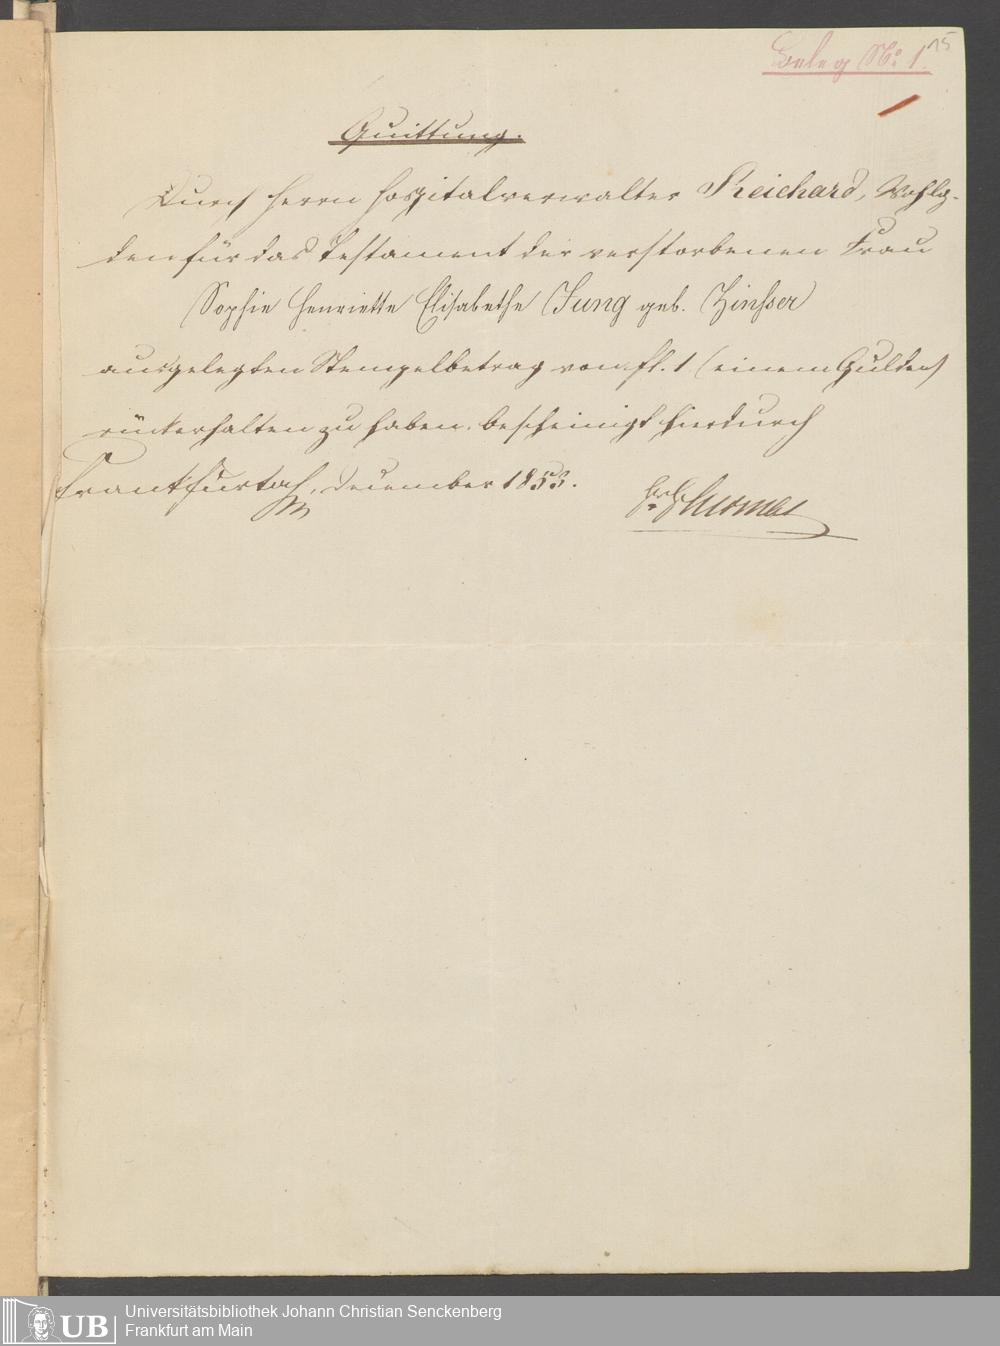 Beleg No. 1.
15
Quittung.
Durch Herrn Hospitalverwalter Reichard, Wohlg.
den für das Testament der verstorbenen Frau
Sophie Henriette Elisabethe Jung geb. Zinsser
ausgelegten Stempelbetrag von fl. 1 (einem Gulden)
rückerhalten zu haben, bescheinigt hierdurch
Frankfurt a/M, December 1853.
UB
Universitätsbibliothek Johann Christian Senckenberg
Frankfurt am Main